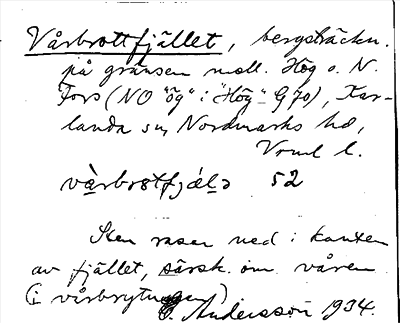 Vårbrottfjället, bergsträckn.
på gränsen mell. Hög o. N.
Fors (NO "ög" i "Hög" G 70), Kar-
landa sn, Nordmarks hd,
Vrml l.
vàrbrɔtfjǽlə 52
Sten rasar ned i kanten
av fjället, särsk. om våren
(i vårbrytningen)
E. Andersson 1934.